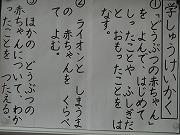 学しゅうけいかく
①「どうぶつの赤ちゃん」
をよんではじめてし
ったことやふしぎだ
とおもったことをは
なす。
②ライオンと しまうま
の赤ちゃんを くらべ
て よむ。
③ほかの どうぶつの
赤ちゃんについて、わか
ったことを つたえる